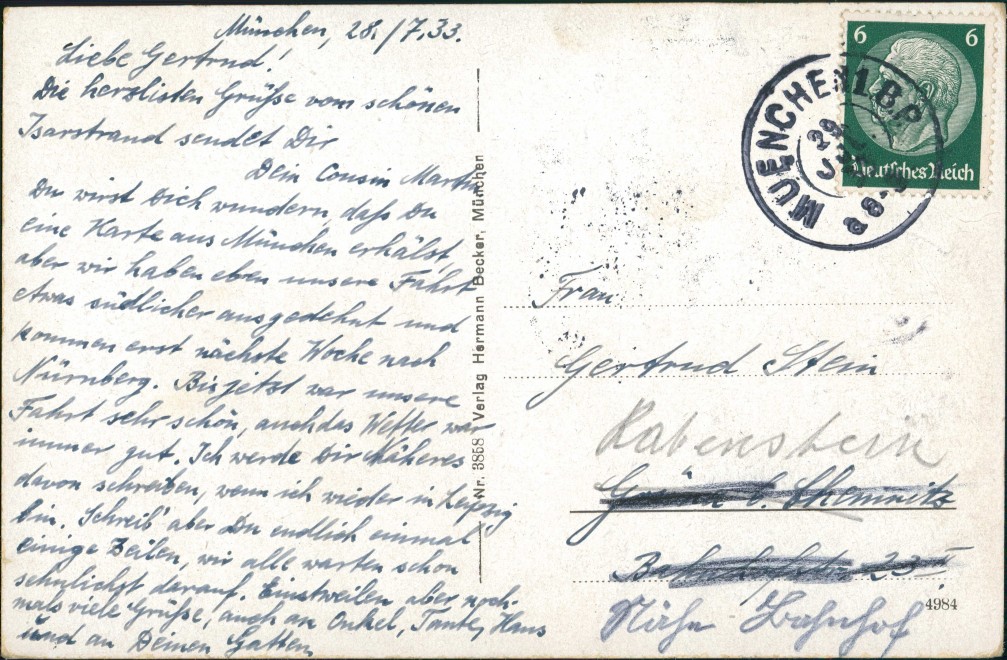 München, 28./7.33.
Liebe Gertrud!
Die herzlisten Grüße vom schönen
Isarstrand sendet Dir
Dein Cousin Martin
Du wirst Dich wundern, daß Du
eine Karte aus München erhälst,
aber wir haben eben unsere Fahrt
etwas südlicher ausgedehnt und
kommen erst nächste Woche nach
Nürnberg. Bis jetzt war unsere
Fahrt sehr schön, auch das Wetter war
immer gut. Ich werde Dir Näheres
davon schreiben, wenn ich wieder in Leipzig
bin. Schreib' aber Du endlich einmal
einige Zeilen, wir alle warten schon
sehnlichst darauf. Einstweilen aber noch-
mals viele Grüße, auch an Onkel, Tante, Hans
und an Deinen Gatten
Nr. 3858 Verlag Hermann Becker, München
6 6
Deutsches Reich
MUENCHEN 1. B.P.
28
Frau
Gertrud Stein
Rabenstein
b. Chemnitz
23
Nähe Bahnhof
4984